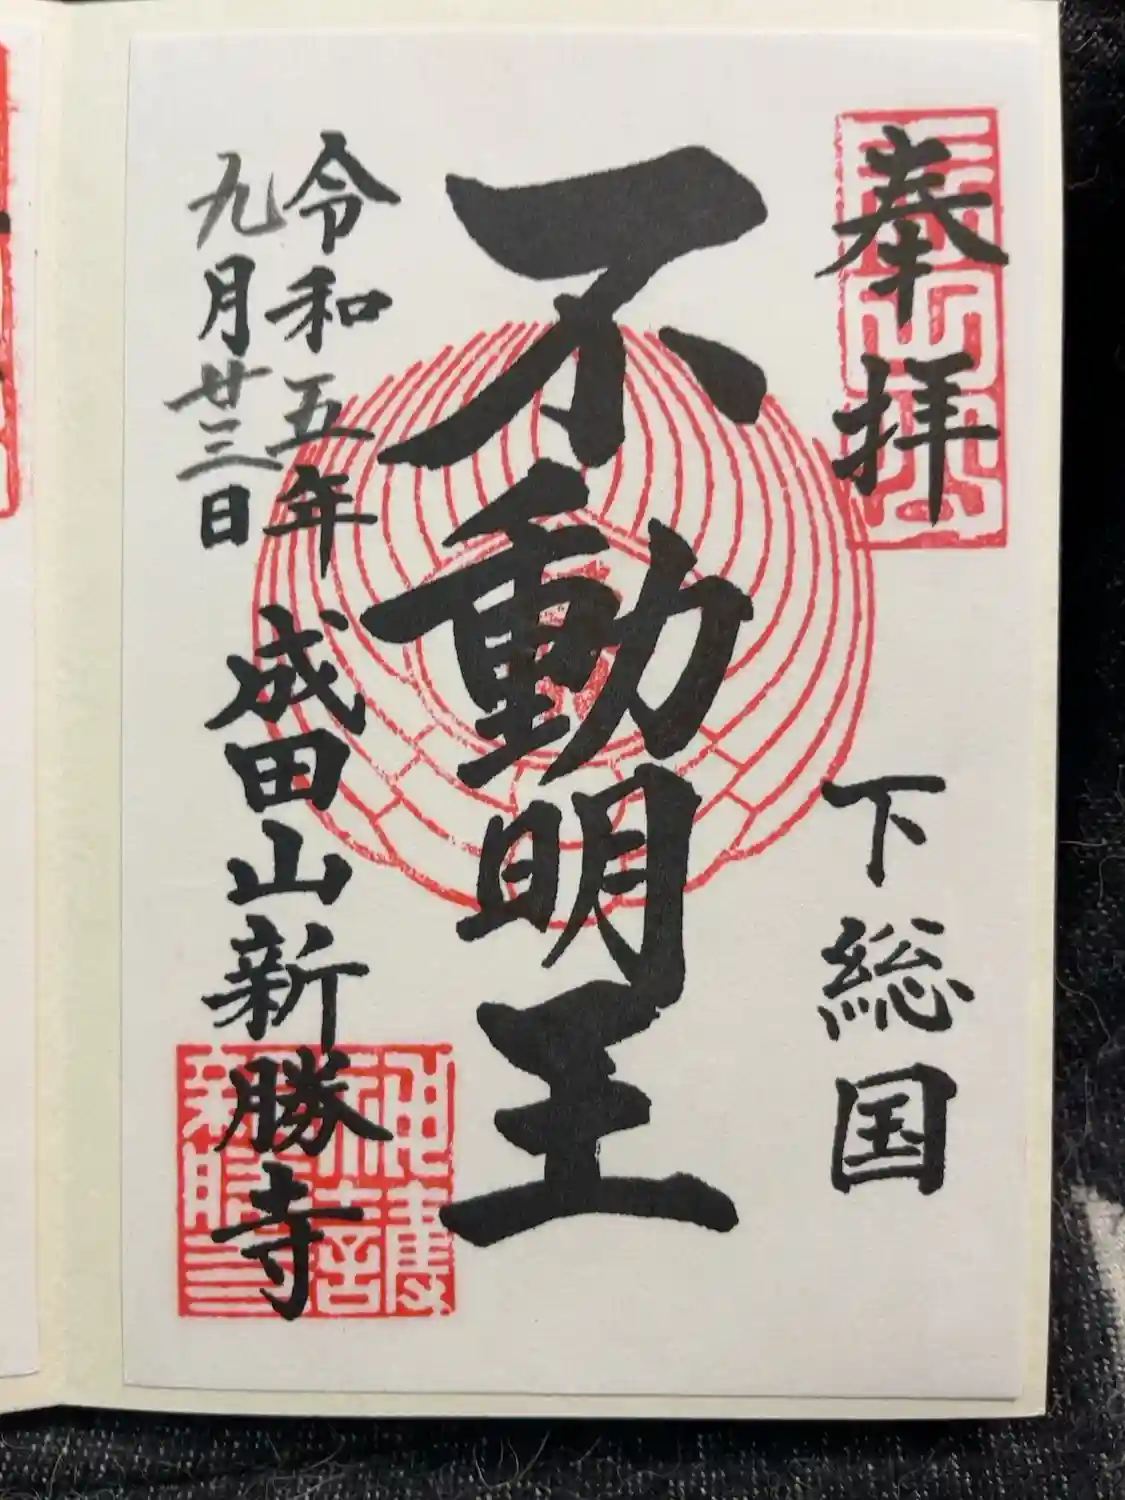 奉拝
下総国
不動明王
令和五年
九月廿三日
成田山新勝寺